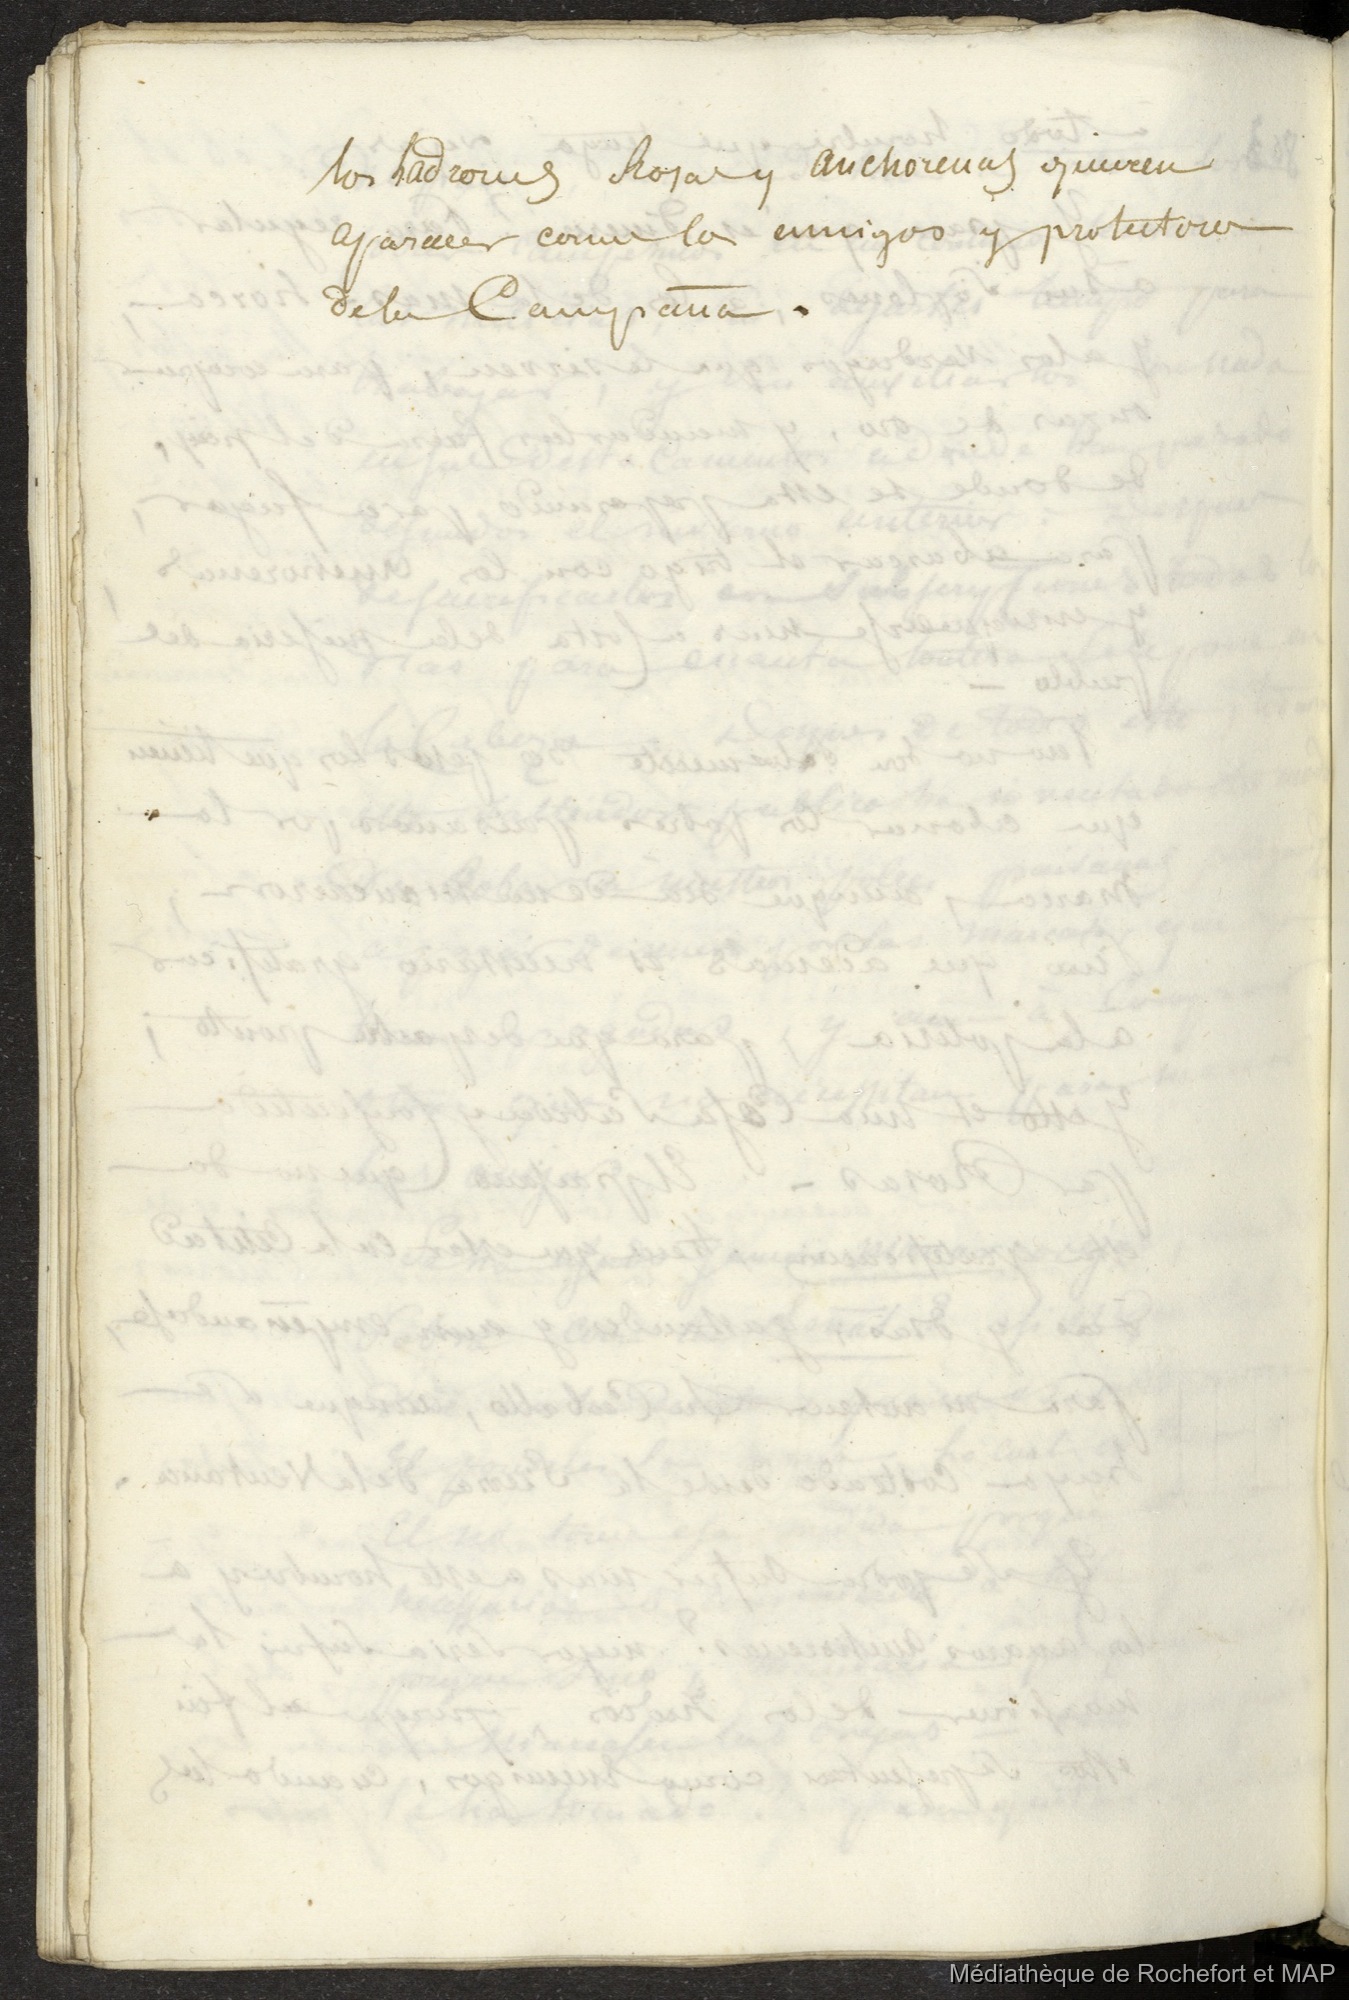 los Ladrones Rosas y Anchorenas quieren
aparecer como los amigos y protectores
de la Campaña.
Médiathèque de Rochefort et MAP